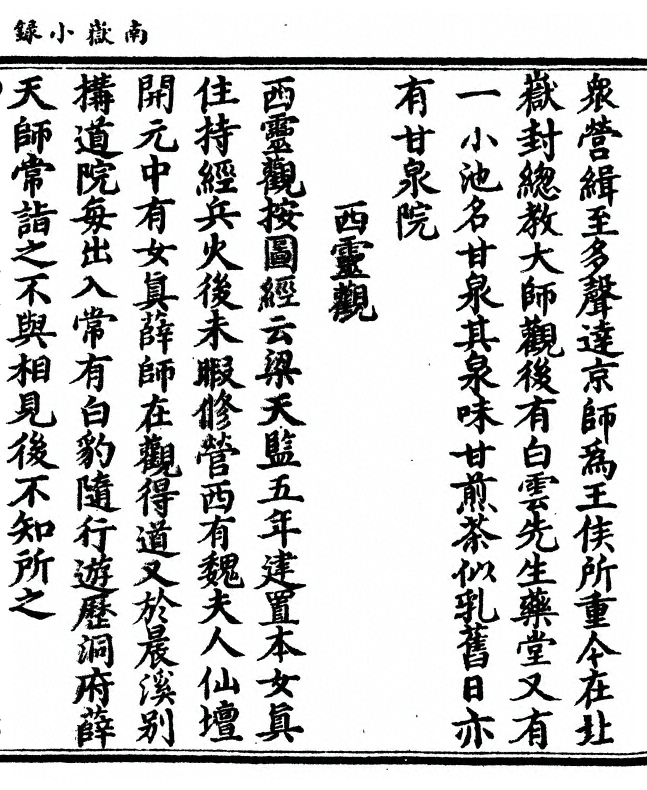 南嶽小録
衆營緝至多聲達京師為王侯所重今在北
嶽封總教大師觀後有白雲先生藥堂又有
一小池名甘泉其泉味甘煎茶似乳舊日亦
有甘泉院
西靈觀
西靈觀按圖經云梁天監五年建置本女真
住持經兵火後未暇修營西有魏夫人仙壇
開元中有女真薛師在觀得道又於晨溪别
搆道院每出入常有白豹隨行遊歷洞府薛
天師常詣之不與相見後不知所之